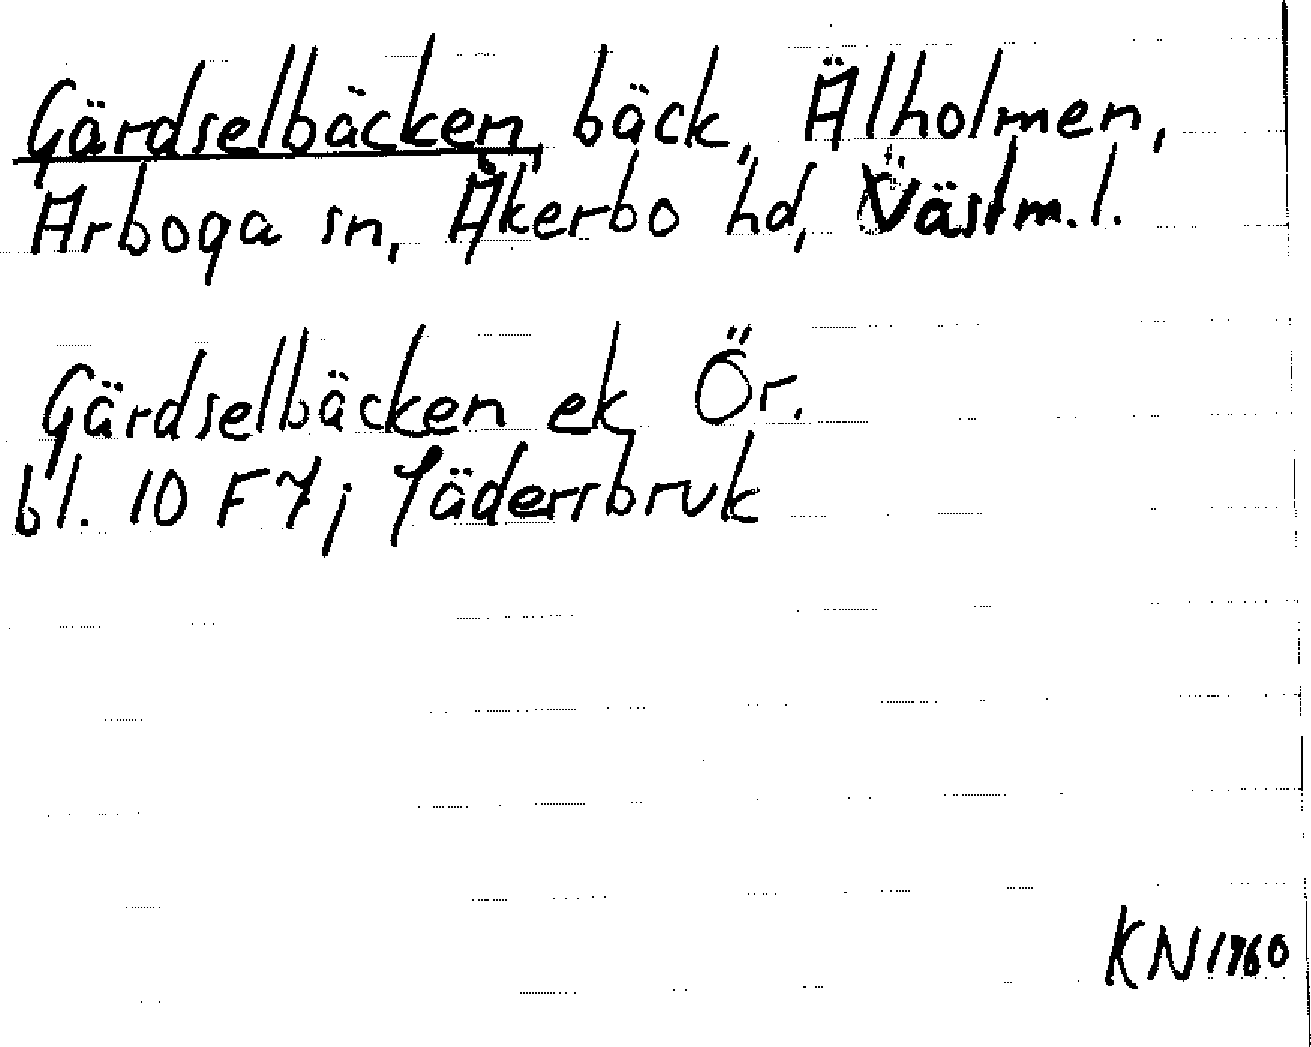 Gärdselbäcken, bäck, Älholmen,
Arboga sn, Åkerbo hd, Västm.l.
Gärdselbäcken ek Ör.
bl. 10 F 7j Jädersbruk
KN 1960